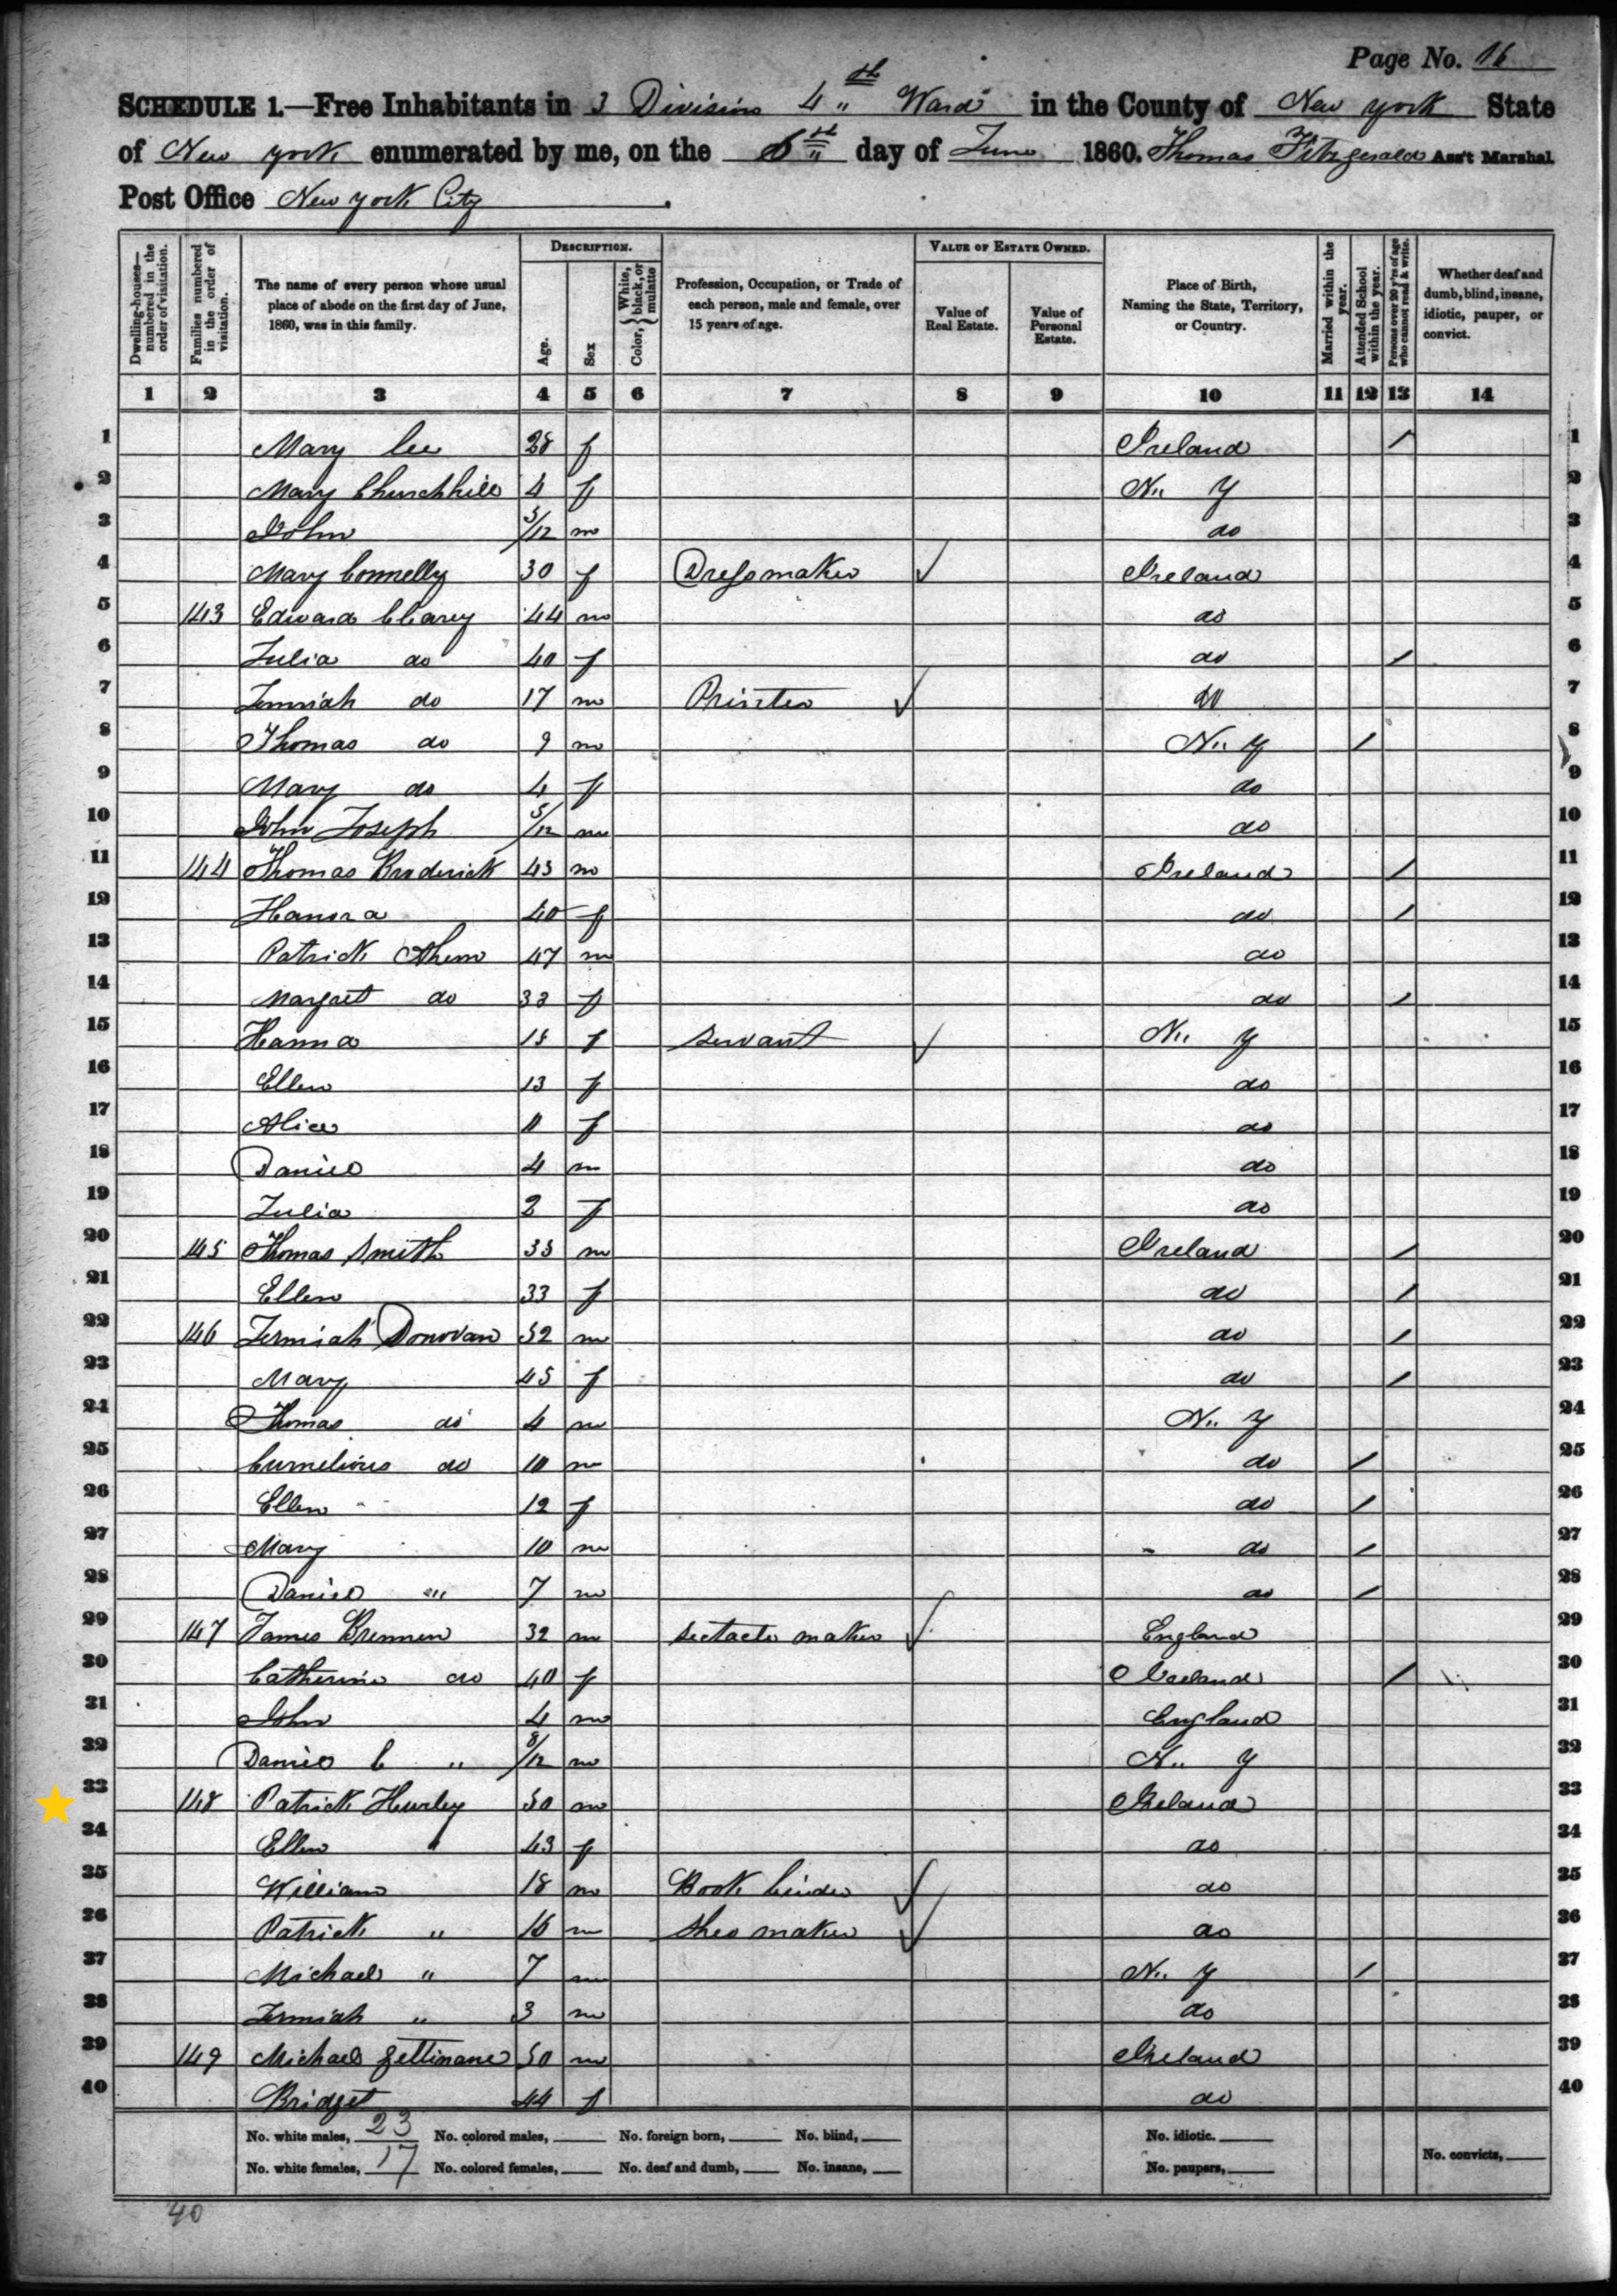 Page No. 16
SCHEDULE 1.—Free Inhabitants in 3 Division 4th Ward in the County of New York State
of New York enumerated by me, on the 6th day of June 1860. Thomas Fitzgerald Ass't Marshal.
Post Office New York City.
Dwelling-houses—numbered in the order of visitation.
Families numbered in the order of visitation.
The name of every person whose usual place of abode on the first day of June, 1860, was in this family.
DESCRIPTION.
Age.
Sex
Color, { White, black, or mulatto
Profession, Occupation, or Trade of each person, male and female, over 15 years of age.
VALUE OF ESTATE OWNED.
Value of Real Estate.
Value of Personal Estate.
Place of Birth, Naming the State, Territory, or Country.
Married within the year.
Attended School within the year.
Persons over 20 y'rs of age who cannot read & write.
Whether deaf and dumb, blind, insane, idiotic, pauper, or convict.
1 2 3 4 5 6 7 8 9 10 11 12 13 14
1 Mary Lee 28 f Ireland / 1
2 Mary Churchhill 4 f N.. Y 2
3 John 5/12 m do 3
4 Mary Connelly 30 f Dressmaker ✓ Ireland 4
5 143 Edward Cleary 44 m do 5
6 Julia do 40 f do / 6
7 Jermiah do 17 m Printer ✓ do 7
8 Thomas do 9 m N.. Y / 8
9 Mary do 4 f do 9
10 John Joseph 5/12 m do 10
11 144 Thomas Broderick 43 m Ireland / 11
12 Hanora 40 f do / 12
13 Patrick Ahern 47 m do 13
14 Margret do 33 f do / 14
15 Hanna 15 f servant ✓ N.. Y 15
16 Ellen 13 f do 16
17 Alice 11 f do 17
18 Daniel 4 m do 18
19 Julia 2 f do 19
20 145 Thomas Smith 35 m Ireland / 20
21 Ellen 33 f do / 21
22 146 Jermiah Donovan 52 m do / 22
23 Mary 45 f do / 23
24 Thomas do 4 m N.. Y 24
25 Curnelious do 10 m do / 25
26 Ellen 12 f do / 26
27 Mary 10 m do / 27
28 Daniel " 7 m do / 28
29 147 James Brennen 32 m maker ✓ England 29
30 Catherine do 40 f Ireland / 30
31 John 4 m England 31
32 Daniel C " 8/12 m N.. Y 32
33 148 Patrick Hurley 50 m Ireland 33
34 Ellen " 43 f do 34
35 William 18 m Book binder ✓ do 35
36 Patrick " 16 m shoe maker ✓ do 36
37 Michael " 7 m N.. Y / 37
38 Jermiah " 3 m do 38
39 149 Michael 50 m Ireland 39
40 Bridget 44 f do 40
No. white males, 23 No. colored males, No. foreign born, No. blind, No. idiotic.
No. white females, 17 No. colored females, No. deaf and dumb, No. insane, No. paupers, No. convicts,
40